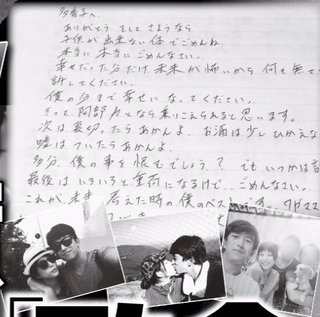 多香子へ。
ありがとう そして さようなら
子供が出来ない体でごめんね
本当に 本当に ごめんなさい。
幸せだった分だけ 未来が怖いから 何も無
許してください。
僕の分まで 幸せに なってください。
きっと 阿部 となら乗りこえられると思います。
次は 裏切ったらあかんよ。 お酒は少しひかえな
嘘は ついたらあかんよ。
多分、僕の事を恨むでしょう? でもいつかは
最後は いろいろと重荷になるけど、ごめんなさい。
これが、未来 考えた時の僕のベス です。